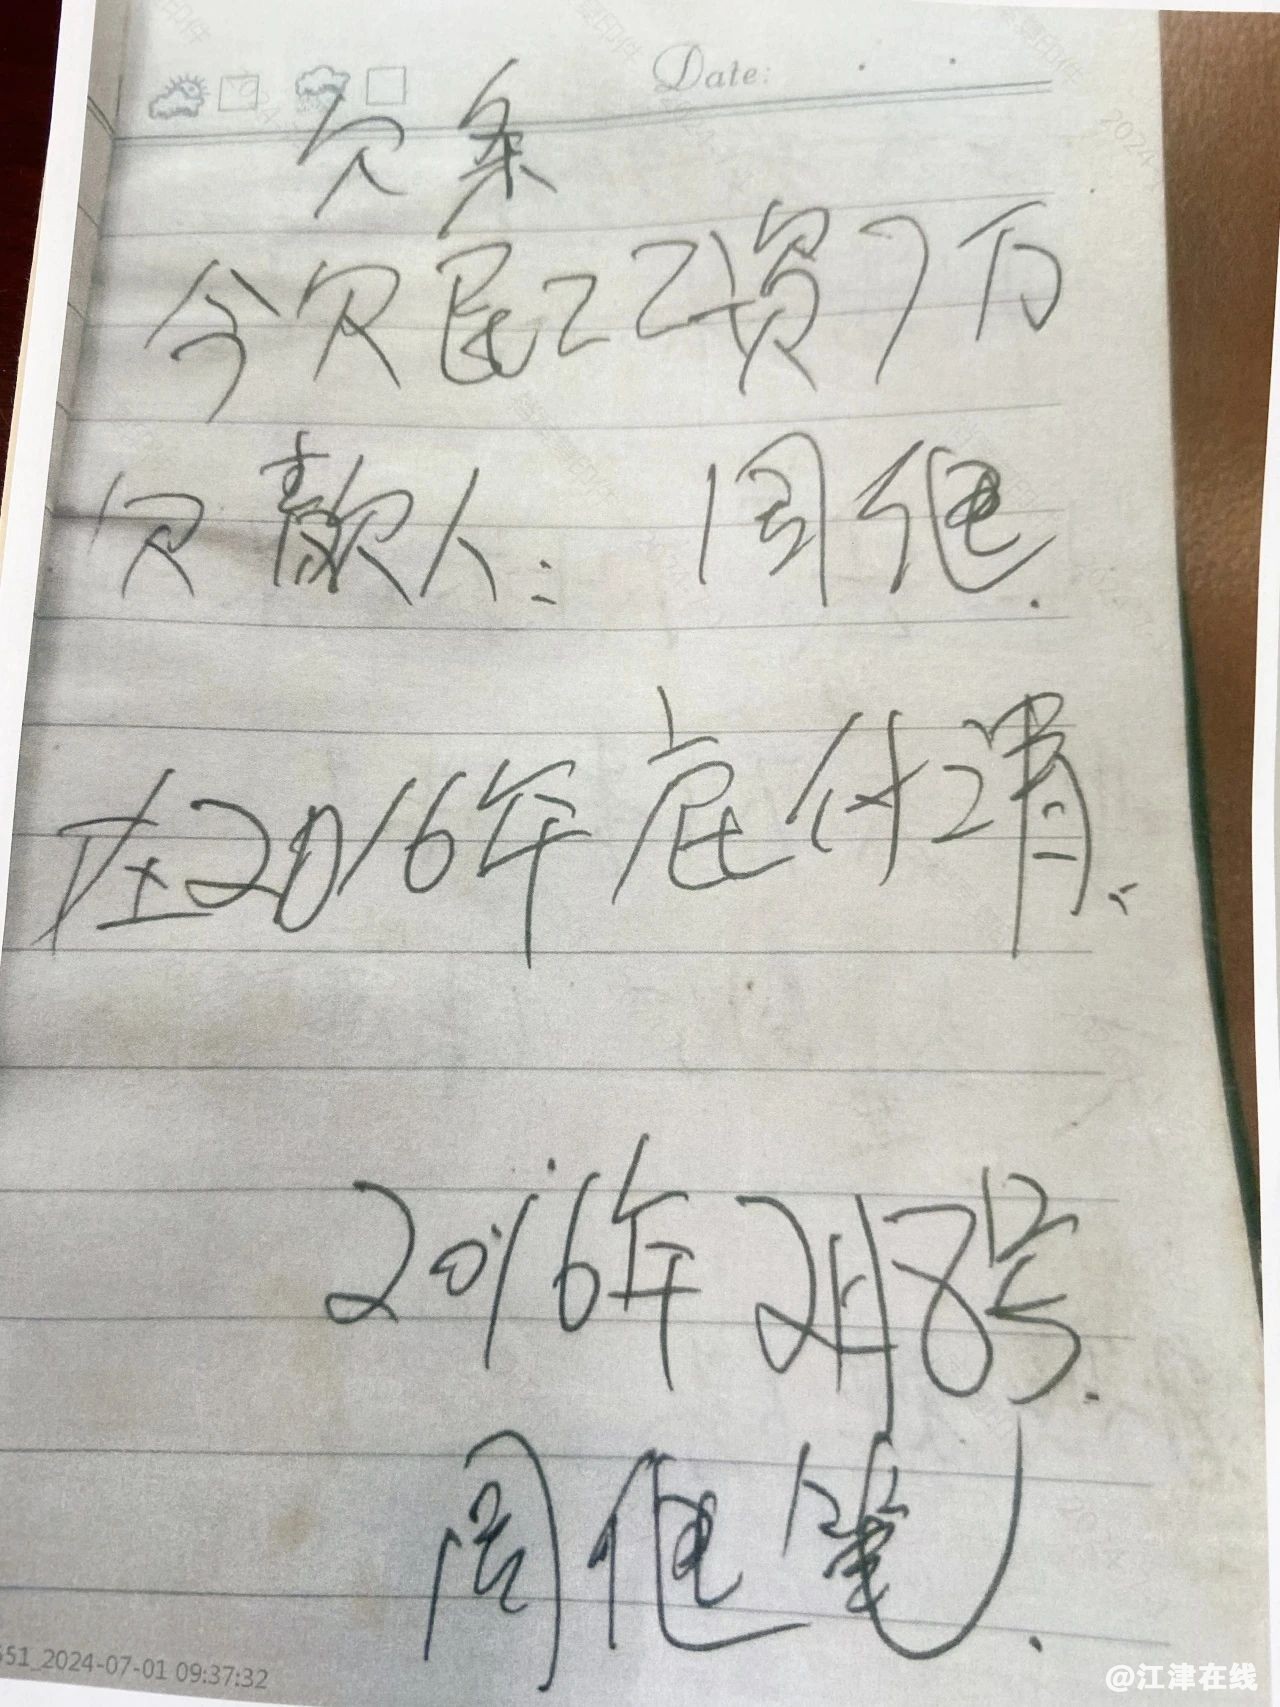 Date:
欠条
今欠民工工资7万
欠款人: 周继.
在2016年底付清、
2016年2月8号.
周继笔.
551_2024-07-01 09:37:32
@江津在线